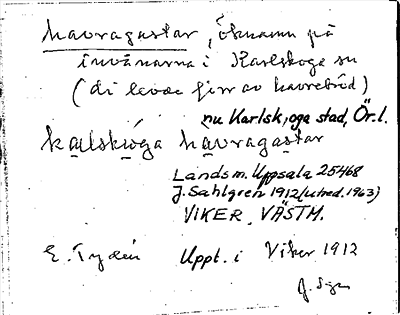 havragastar, öknamn på
invånarna i Karlskoga sn
(di levde jinn av havrebröd)
nu Karlskoga stad, Ör.l.
kalskøga havragastar
Landsm. Uppsala 25468
J. Sahlgren 1912 (utred. 1963)
VIKER, VÄSTM.
E. Tydén Uppt. i Viker 1912